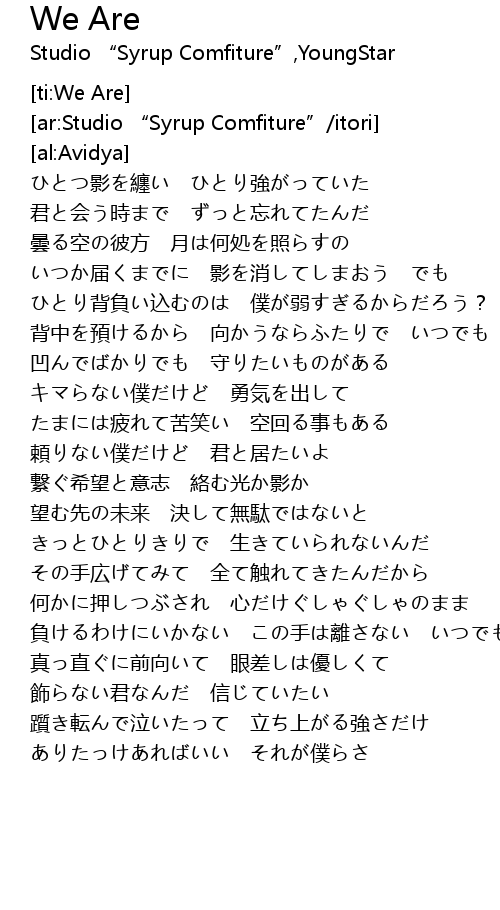 We Are
Studio “Syrup Comfiture”,YoungStar
[ti:We Are]
[ar:Studio “Syrup Comfiture”/itori]
[al:Avidya]
ひとつ影を纏い　ひとり強がっていた
君と会う時まで　ずっと忘れてたんだ
曇る空の彼方　月は何処を照らすの
いつか届くまでに　影を消してしまおう　でも
ひとり背負い込むのは　僕が弱すぎるからだろう？
背中を預けるから　向かうならふたりで　いつでも
凹んでばかりでも　守りたいものがある
キマらない僕だけど　勇気を出して
たまには疲れて苦笑い　空回る事もある
頼りない僕だけど　君と居たいよ
繋ぐ希望と意志　絡む光か影か
望む先の未来　決して無駄ではないと
きっとひとりきりで　生きていられないんだ
その手広げてみて　全て触れてきたんだから
何かに押しつぶされ　心だけぐしゃぐしゃのまま
負けるわけにいかない　この手は離さない　いつでも
真っ直ぐに前向いて　眼差しは優しくて
飾らない君なんだ　信じていたい
躓き転んで泣いたって　立ち上がる強さだけ
ありたっけあればいい　それが僕らさ